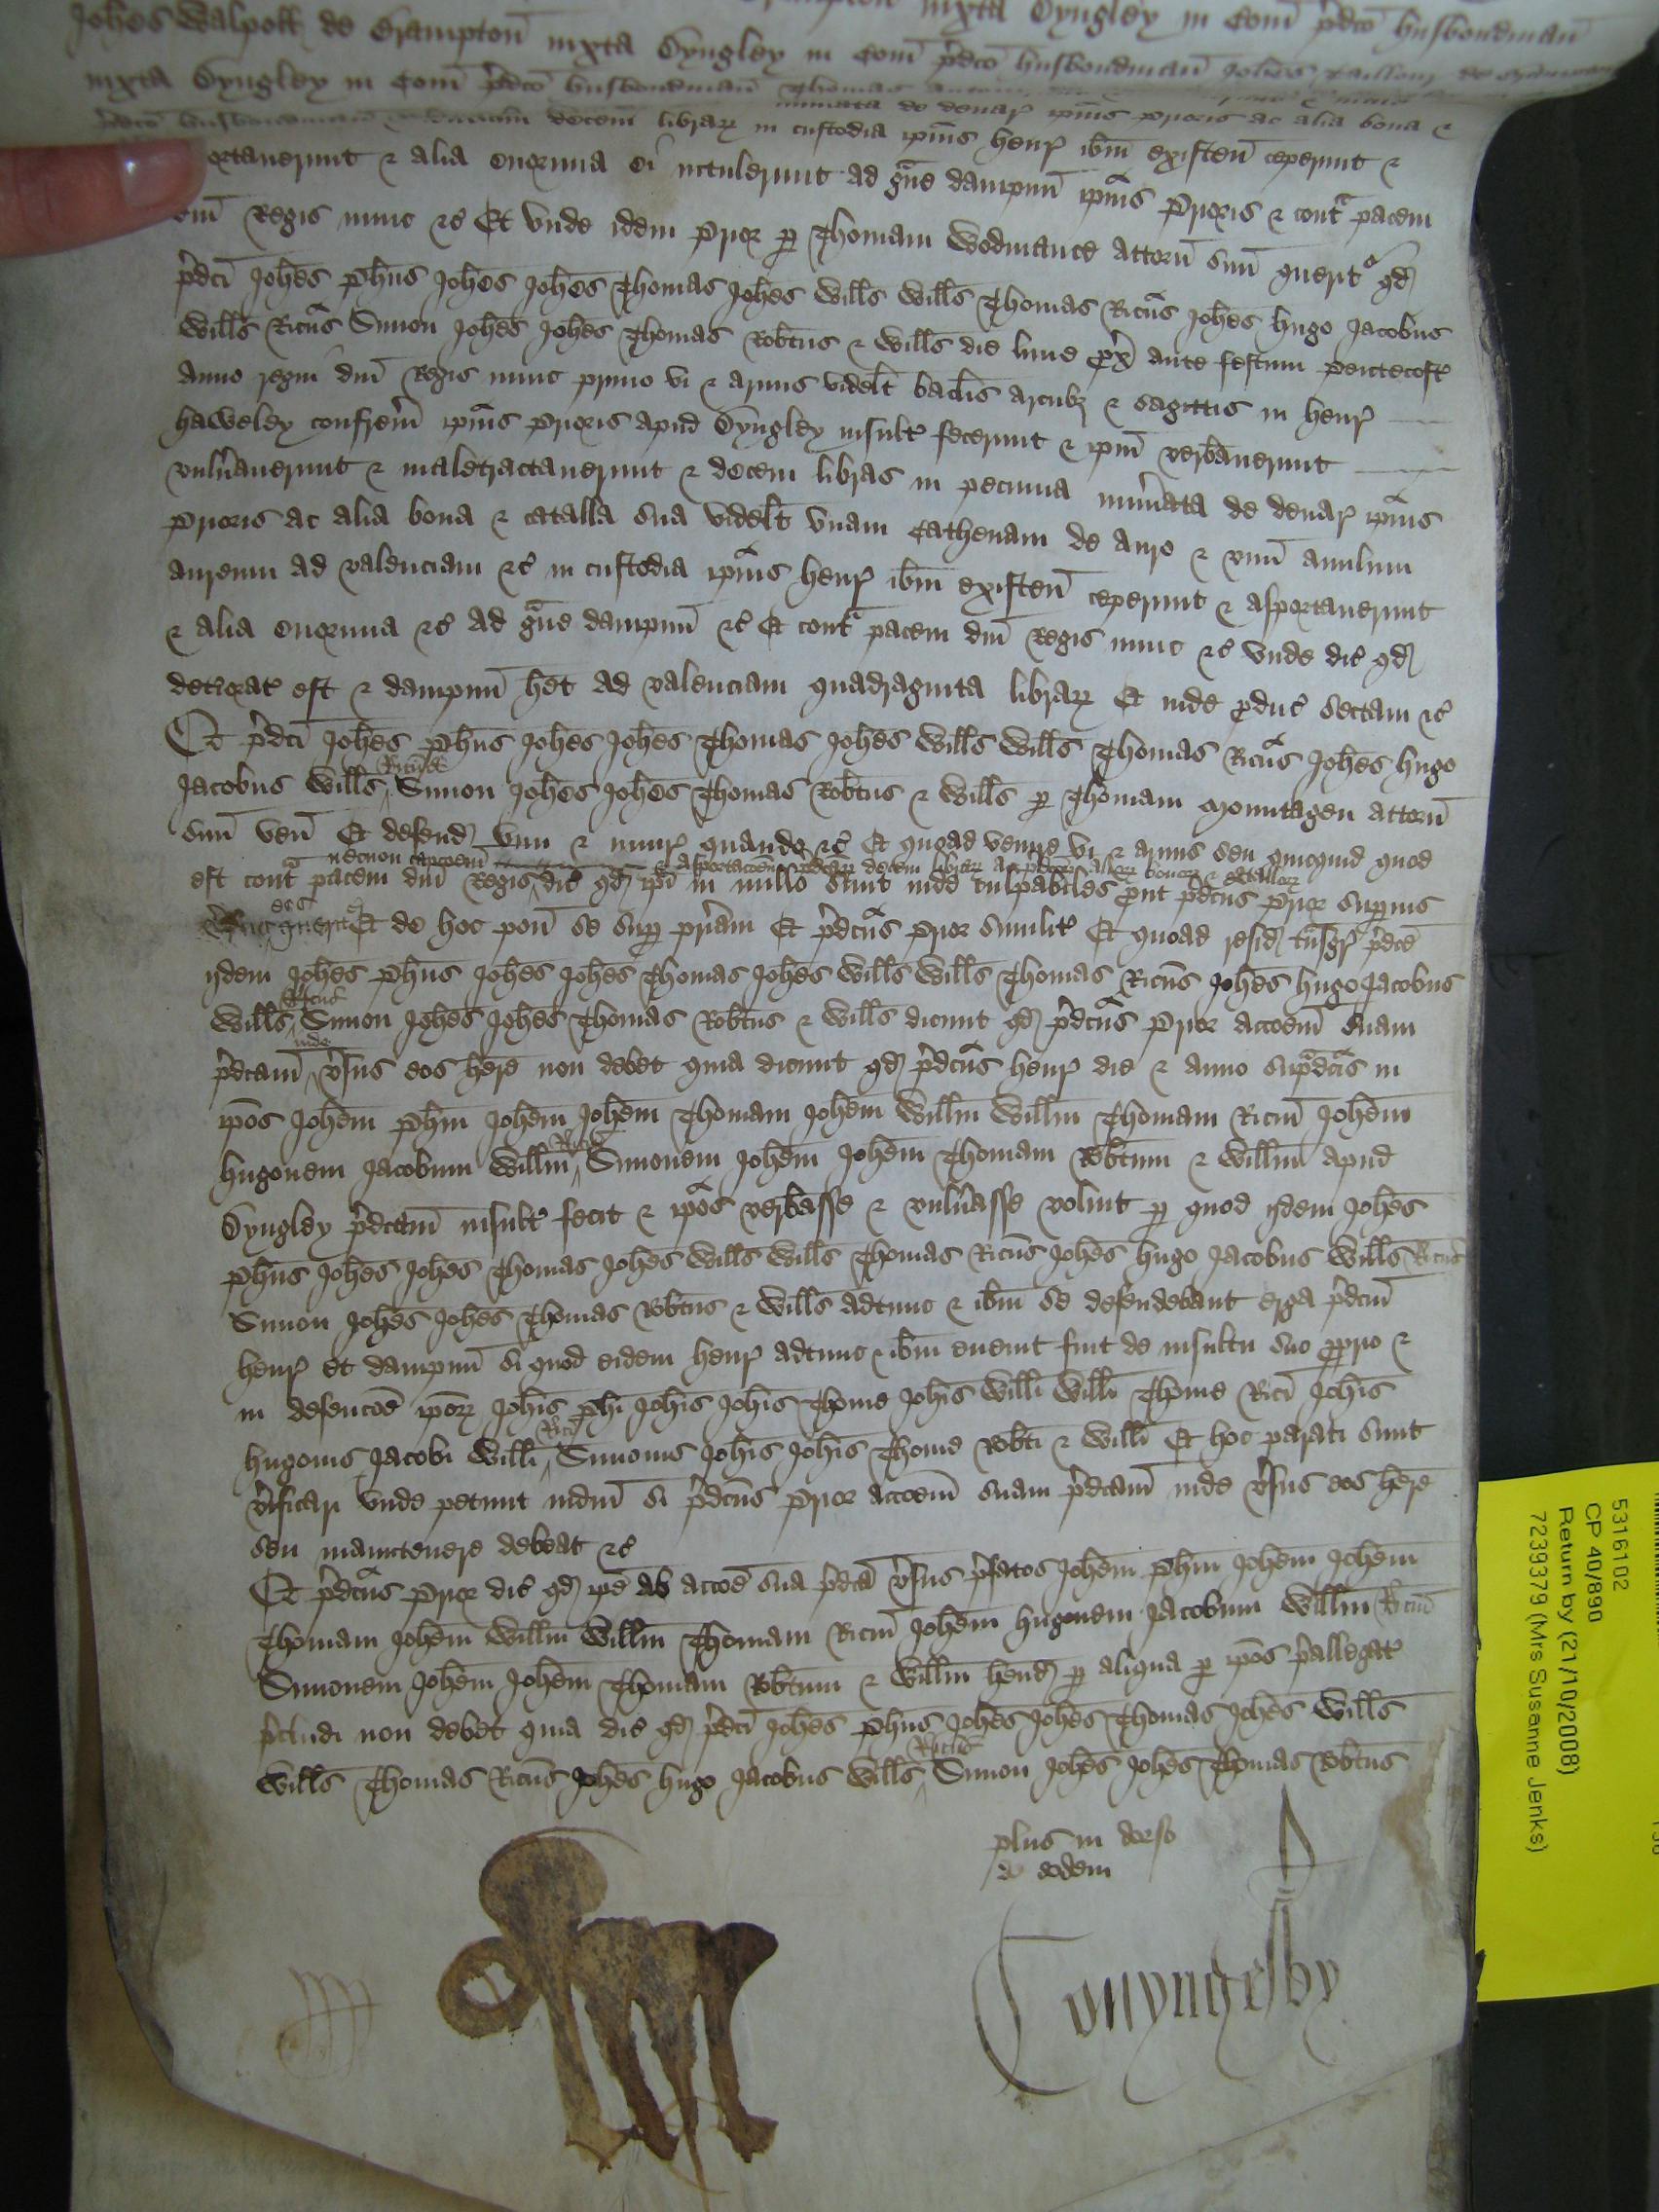 Joħes Walpoll de Crampton iuxta Dyngley in Com̄ p̄dc̄o husbondman̄
iuxta Dyngley in Com̄ p̄dc̄o husbondman̄ Joħes
iuxta Dyngley in Com̄ p̄dc̄o husbondman̄ Thomas
numata de denar̄ ip̄ius Prioris ac alia bona &
decem librar̄ in custodia ip̄ius Henr̄ ibm̄ existen̄ ceperunt &
ortauerunt & alia enormia ei intulerunt ad g̃ue dampnū ip̄ius Prioris & cont̃ pacem
Regis nunc &c̄ Et unde idem Prior p̱ Thomam Wodmance attorn̄ suū querit̃ qd̄
p̄dc̄i Joħes Pħus Joħes Joħes Thomas Joħes Wills Wills Thomas Ricūs Joħes Hugo Jacobus
Wills Ricūs Simon Joħes Joħes Thomas Rob̄tus & Wills die lune p̄x̄ ante festum Pentecost̄
anno regni dn̄i Regis nunc primo vi & armis videlt̄ bac̄lis arcubȝ & sagittis in Henr̄
Haweley confrem̄ ip̄ius Prioris apud Dyngley insult̃ fecerunt & ip̄m verb̃auerunt
vuln̄auerunt & maletractauerunt & decem libras in pecunia num̄ata de denar̄ ip̄ius
Prioris ac alia bona & catalla sua videlt̄ vnam Cathenam de Auro & vnū anulum
aureum ad valenciam &c̄ in custodia ip̄ius Henr̄ ibm̄ existen̄ ceperunt & asportauerunt
& alia enormia &c̄ Ad g̃ue dampnū &c̄ Et cont̃ pacem dn̄i Regis nunc &c̄ Unde dic̄ qd̄
deteriorat̃ est & dampnū het̄ ad valenciam quadraginta librar̄ Et inde p̱duc̄ sectam &c̄
Et p̄dc̄i Joħes Pħus Joħes Joħes Thomas Joħes Wills Wills Thomas Ricūs Joħes Hugo
Ricūs
Jacobus Wills Simon Joħes Joħes Thomas Rob̄tus & Wills p̱ Thomam Mountagen attorn̄
suū ven̄ Et defend̄ vim & iniur̄ quando &c̄ Et quoad venire vi & armis seu quicquid quod
necnon capc̄oem & asportac̄oem p̄dc̄ar̄ decem librar̄ ac p̄dc̄or̄ alior̄ bonor̄ & catallor̄
est cont̃ pacem dn̄i Regis dic̄ qd̄ ip̄i in nullo sunt inde culpabiles p̱ut p̄dc̄us Prior sup̱ius
eos
v̄sus querit̃ Et de hoc pon̄ se sup̱ pr̄iam Et p̄dc̄us Prior similit̃ Et quoad resid̄ t̃nsgr̄ p̄dc̄e
ijdem Joħes Pħus Joħes Joħes Thomas Joħes Wills Wills Thomas Ricūs Joħes Hugo Jacobus
Ricūs
Wills Simon Joħes Joħes Thomas Rob̄tus & Wills dicunt qd̄ p̄dc̄us Prior acc̄oem suam
inde
p̄dc̄am v̄sus eos her̄e non debet quia dicunt qd̄ p̄dc̄us Henr̄ die & anno sup̱dc̄is in
ip̄os Joħem Pħm Joħem Joħem Thomam Joħem Willm̄ Willm̄ Thomam Ricm̄ Joħem
Ricm̄
Hugonem Jacobum Willm̄ Simonem Joħem Joħem Thomam Rob̄tum & Willm̄ apud
Dyngley p̄dc̄am insult̃ fecit & ip̄os verb̃asse & vuln̄asse voluit p̱ quod ijdem Joħes
Pħus Joħes Joħes Thomas Joħes Wills Wills Thomas Ricūs Joħes Hugo Jacobus Wills Ricūs
Simon Joħes Joħes Thomas Rob̄tus & Wills adtunc & ibm̄ se defendebant erga p̄dc̄m
Henr̄ et dampnū si quod eidem Henr̄ adtunc & ibm̄ euenit fuit de insultu suo p̱prio &
in defenc̄oe ip̄or̄ Joħis Pħi Joħis Joħis Thome Joħis Willi Willi Thome Rici Joħis
Rici
Hugonis Jacobi Willi Simonis Joħis Joħis Thome Rob̄ti & Willi Et hoc parati sunt
v̄ificari Unde petunt iudm̄ si p̄dc̄us Prior acc̄oem suam p̄dc̄am inde v̄sus eos her̄e
seu manutenere debeat &c̄
Et p̄dc̄us Prior dic̄ qd̄ ip̄e ab acc̄oe sua p̄dc̄a v̄sus p̄fatos Joħem Pħm Joħem Joħem
Thomam Joħem Willm̄ Willm̄ Thomam Ricm̄ Joħem Hugonem Jacobum Willm̄ Ricm̄
Simonem Joħem Joħem Thomam Rob̄tum & Willm̄ hend̄ p̱ aliqua p̱ ip̄os p̄allegat̃
p̄cludi non debet quia dic̄ qd̄ p̄dc̄i Joħes Pħus Joħes Joħes Thomas Joħes Wills
Ricūs
Wills Thomas Ricūs Joħes Hugo Jacobus Wills Simon Joħes Joħes Thomas Rob̄tus
plus in dorso
de eodem
Conyngesby
5316102
CP 40/890
Return by (21/10/2008)
7239379 (Mrs Susanne Jenks)